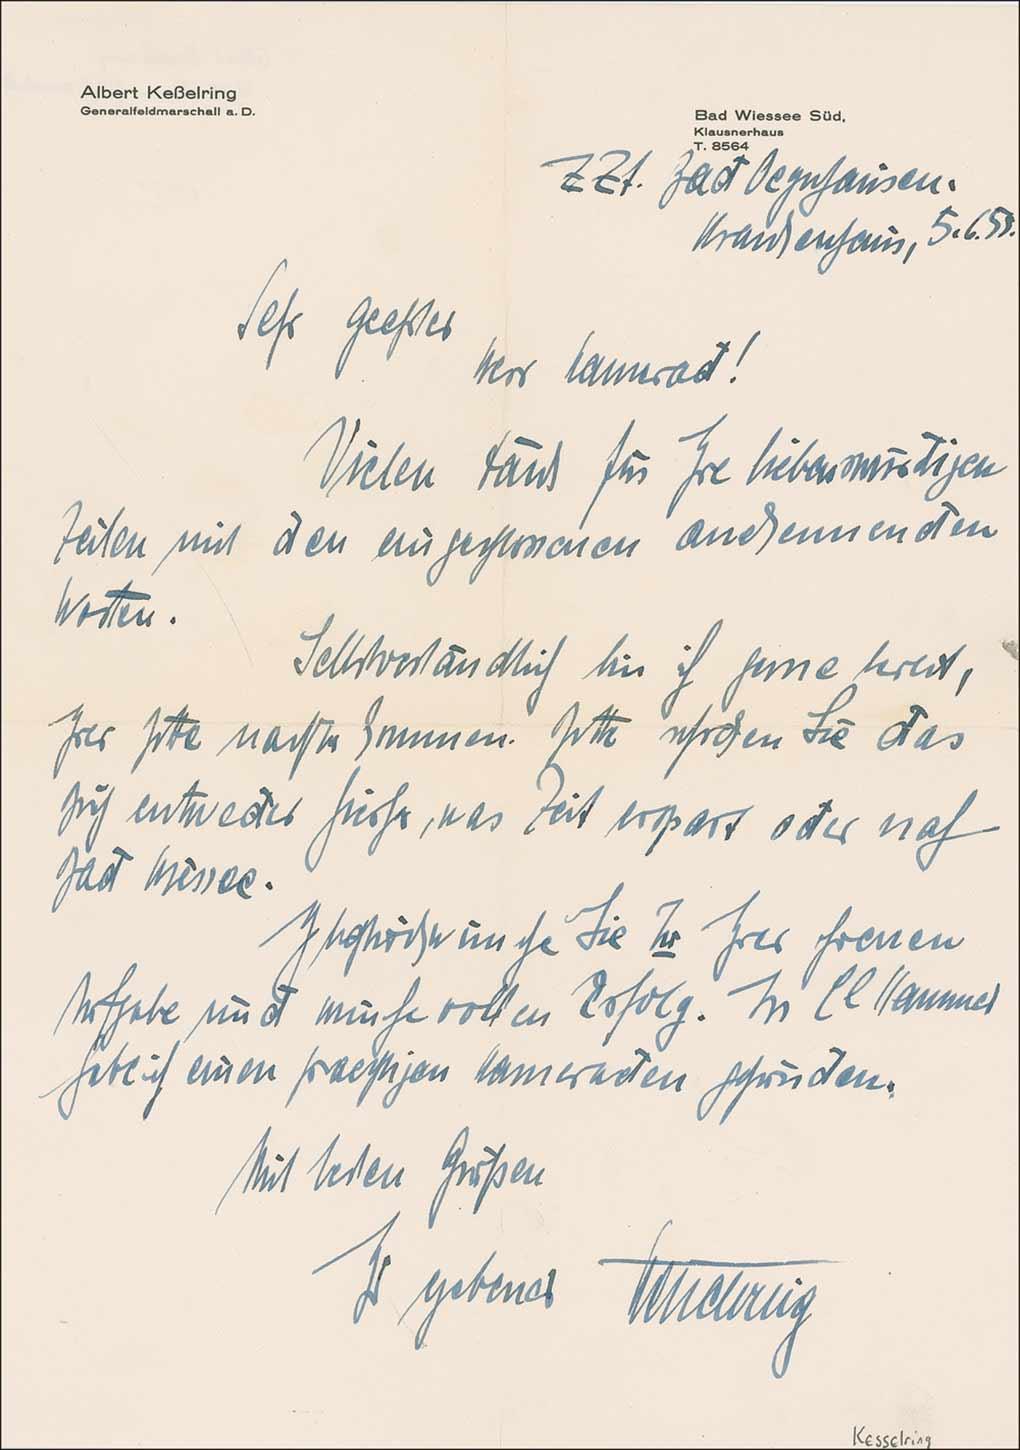 Albert Keßelring
Generalfeldmarschall a. D.
Bad Wiessee Süd,
Klausnerhaus
T. 8564
ZZt. Bad Oeynhausen.
Krankenhaus, 5.6.
Sehr geehrter
Herr Kamerad!
Vielen Dank für Ihre liebenswürdigen
Zeilen mit den eingeschlossenen anerkennenden
Worten.
Selbstverständlich bin ich gerne bereit,
Ihrer Bitte nachzukommen. Bitte schicken Sie das
Buch entweder hierher, was Zeit erspart oder nach
Bad Wiessee.
Ich beglückwünsche Sie zu Ihrer schönen
Aufgabe und wünsche vollen Erfolg. In
habe ich einen prächtigen Kameraden gefunden.
Mit besten Grüßen
Ihr ergebener Kesselring
Kesselring